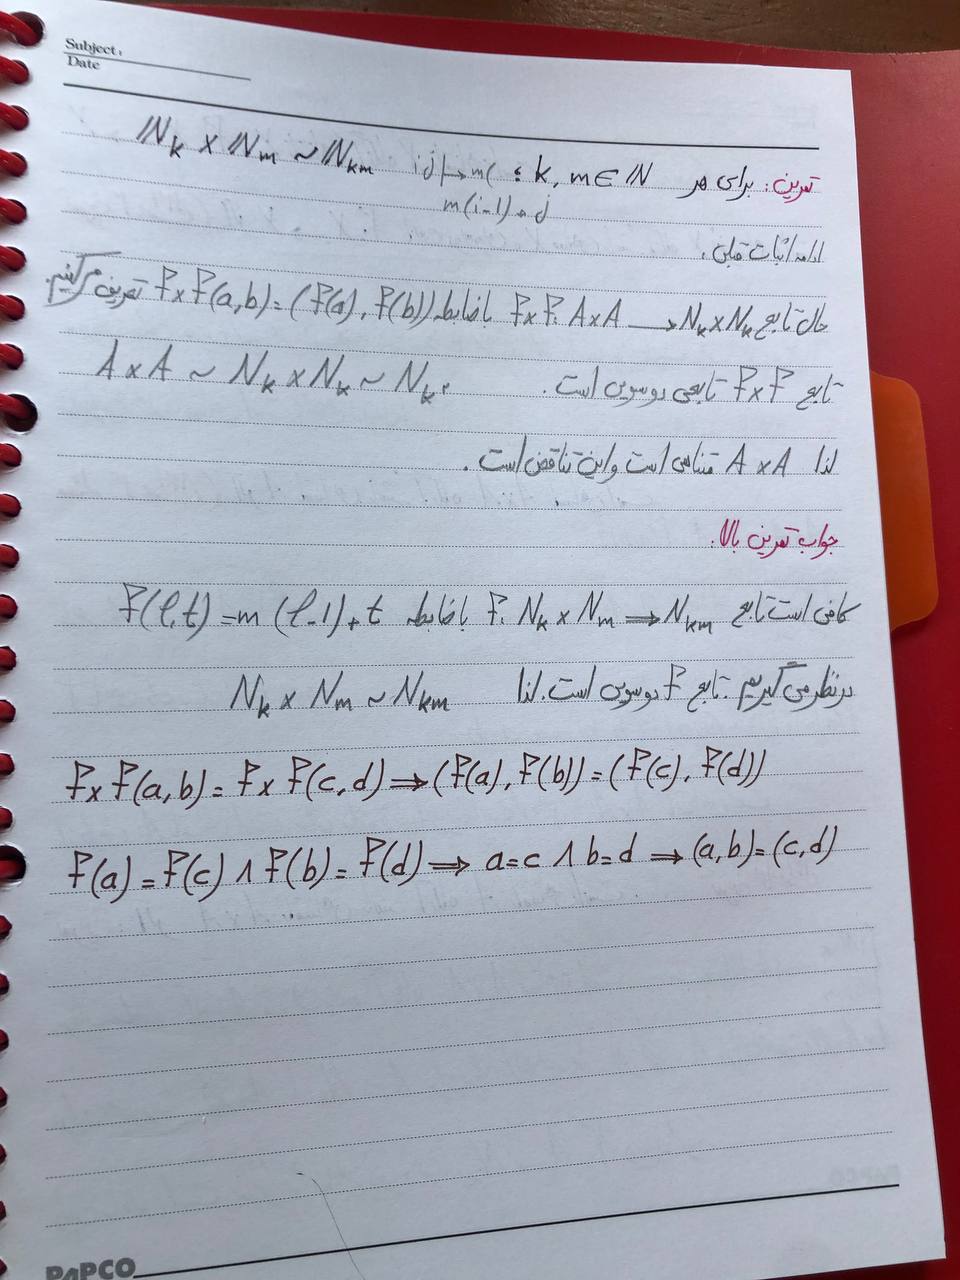 Subject :
Date
تمرین: برای هر k, m ∈ ℕ ؛ ℕk × ℕm ~ ℕkm
i j ↦ m(
m(i-1)+j
ادامه اثبات قبلی.
حال تابع f×f: A×A → ℕk×ℕk باضابطه f×f(a,b)=(f(a), f(b)) تعریف می‌کنیم.
تابع f×f تابعی دوسویی است. A×A ~ ℕk×ℕk ~ ℕk²
لذا A×A متناهی است و این تناقض است.
جواب تمرین بالا.
کافی است تابع f: ℕk×ℕm ⟶ ℕkm باضابطه f(l,t)=m(l-1)+t
در نظر می گیریم. تابع f دوسویی است. لذا ℕk × ℕm ~ ℕkm
f×f(a,b)=f×f(c,d) ⇒ (f(a), f(b))=(f(c), f(d))
f(a)=f(c) ∧ f(b)=f(d) ⇒ a=c ∧ b=d ⇒ (a,b)=(c,d)
PAPCO